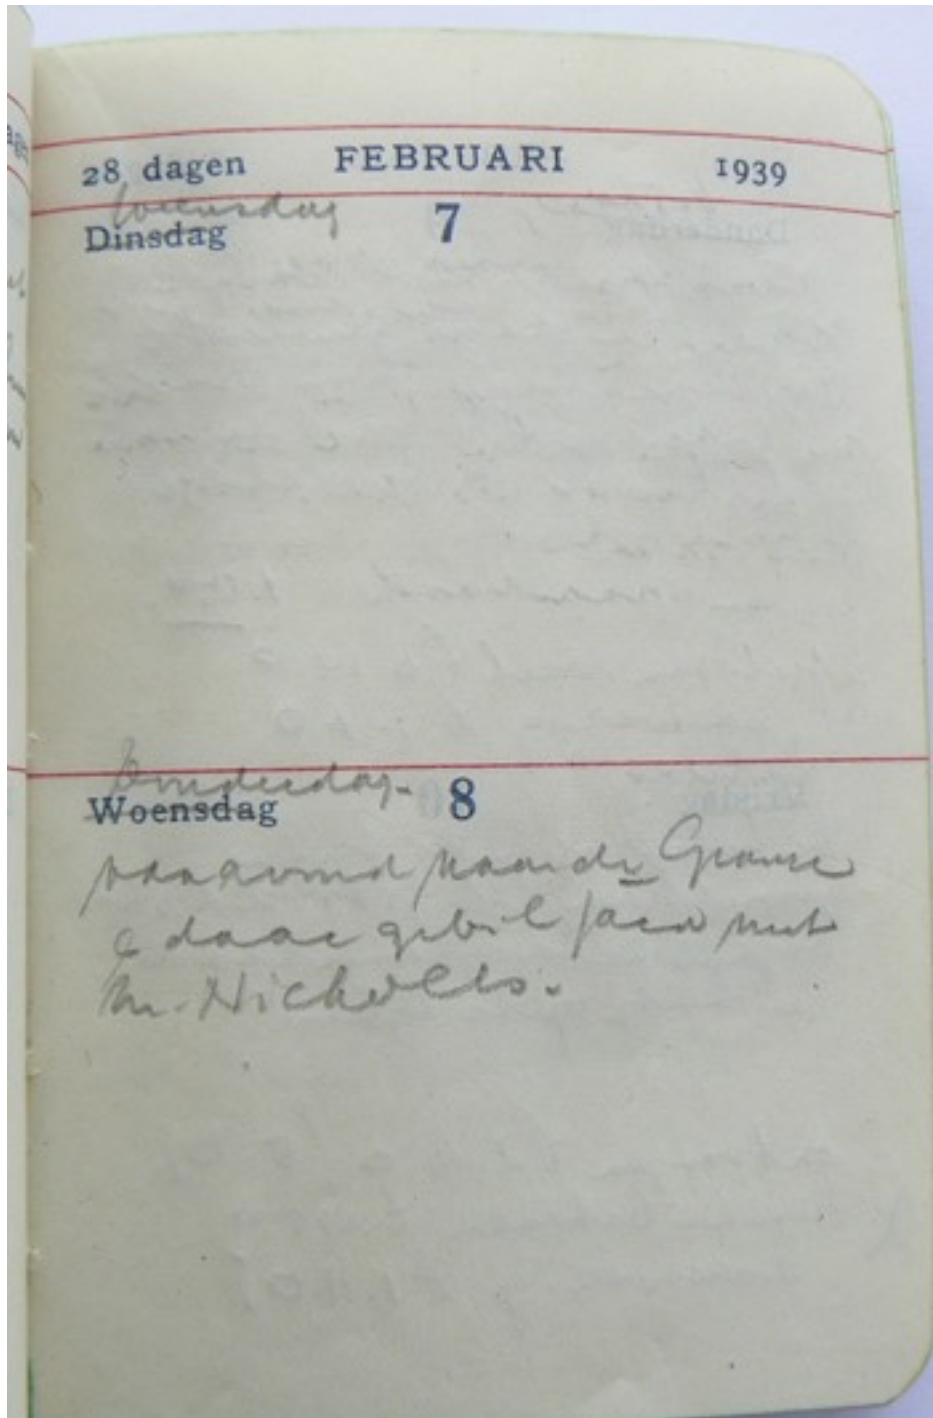 28 dagen FEBRUARI 1939
Woensdag
Dinsdag 7
Donderdag.
Woensdag 8
vanavond naar de
& daar gebiljaerd met
Mr. Nicholls.